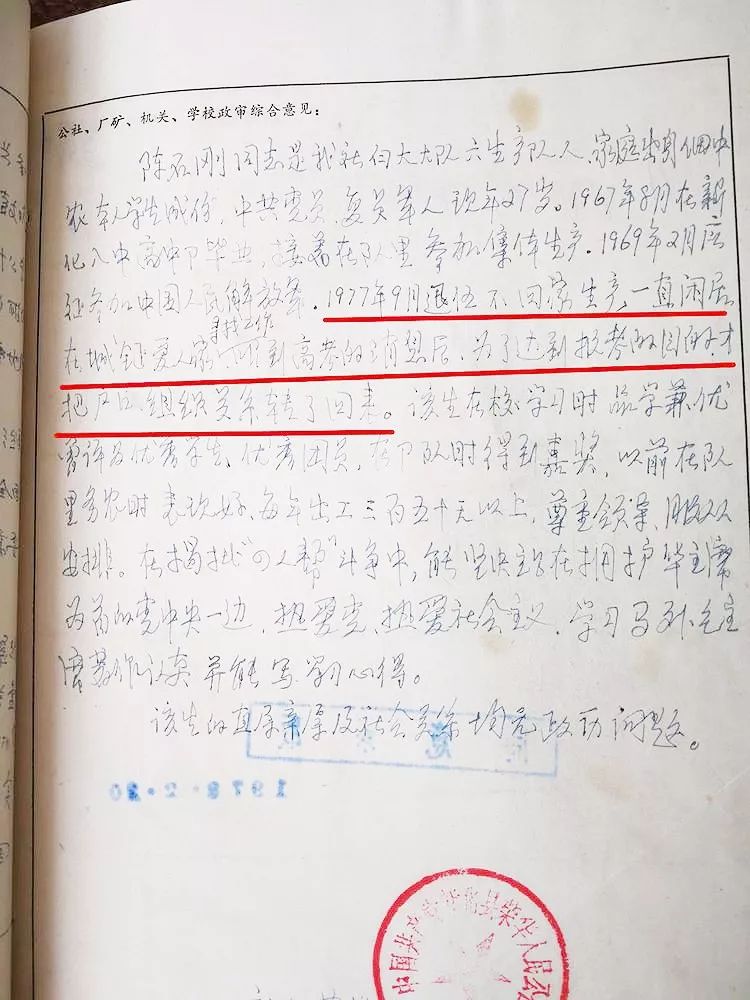 公社、厂矿、机关、学校政审综合意见：
陈石刚同志是我社伯大大队六生产队人、家庭出身佃中
农本人学生成份，中共党员，复员军人现年27岁。1967年8月在新
化八中高中卩毕业，接着在队里参加集体生产。1969年2月应
征参加中国人民解放军。1977年9月退伍不回家生产，一直闲居
寻找工作
在城镇爱人家 听到高考的消息后，为了达到报考的目的才
把户口、组织关系转了回来。该生在校学习时品学兼优
曾评为优秀学生、优秀团员，在卩队时得到嘉奖，以前在队
里务农时表现好、每年出工三百五十天以上，尊重领导、服从
安排。在揭批"四人帮"斗争中，能坚决站在拥护华主席
为首的党中央一边，热爱党、热爱社会主义，学习马列毛主
席著作认真并能写学习心得。
该生的直属亲属及社会关系均无政历问题。
1978.2.20
中国共产党新化县荣华人民公